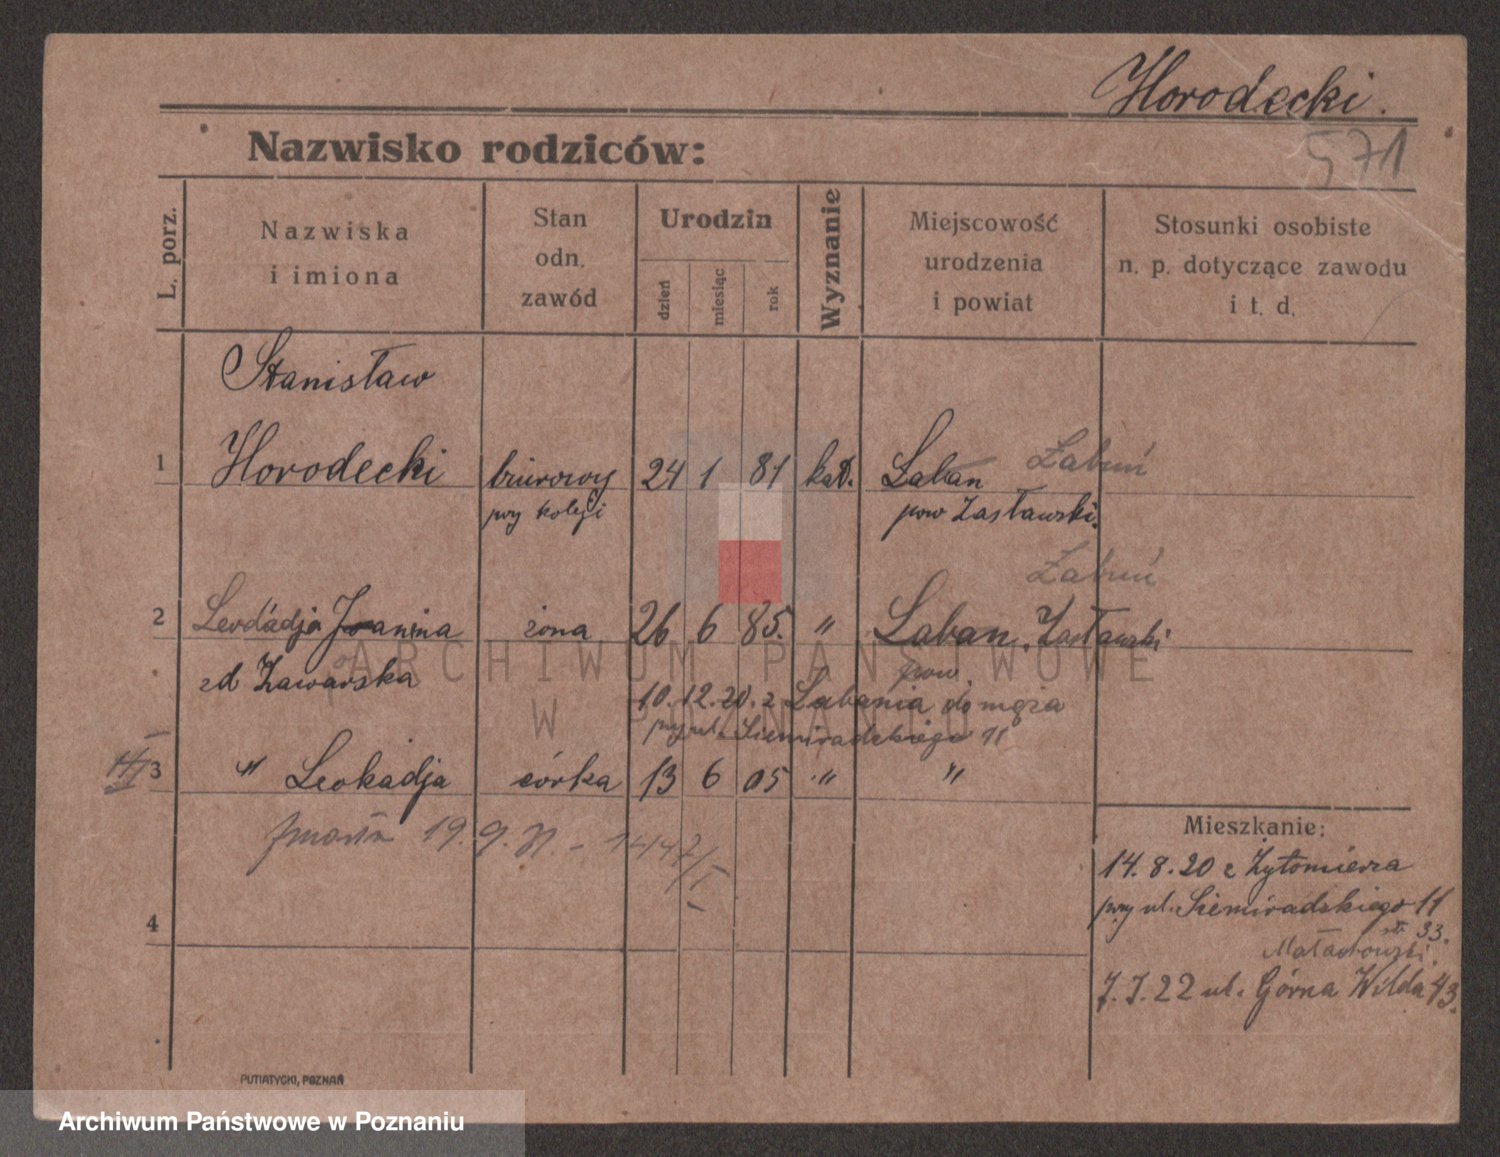 Horodecki.
571
Nazwisko rodziców:
L. porz.
Nazwiska
i imiona
Stan
odn.
zawód
Urodzin
dzień
miesiąc
rok
Wyznanie
Miejscowość
urodzenia
i powiat
Stosunki osobiste
n. p. dotyczące zawodu
i t. d.
Stanisław
1 Horodecki biurowy 24 1 81 kat. Laban Łabuń
przy kolei pow Zasławski.
Łabuń
2 Joanina żona 26 6 85. " Laban, Zasławski
zd Zawarska pow.
10.12.20. z Labania do męża
przy ul. Siemiradzkiego 11
3 " Leokadja córka 13 6 05 " "
19. 9.
Mieszkanie:
14. 8. 20 z Żytomierza
przy ul. Siemiradzkiego 11
33.
Małachowski.
7. 7. 22 ul. Górna Wilda 43.
4
PUTIATYCKI, POZNAŃ
ARCHIWUM PAŃSTWOWE
W POZNANIU
Archiwum Państwowe w Poznaniu